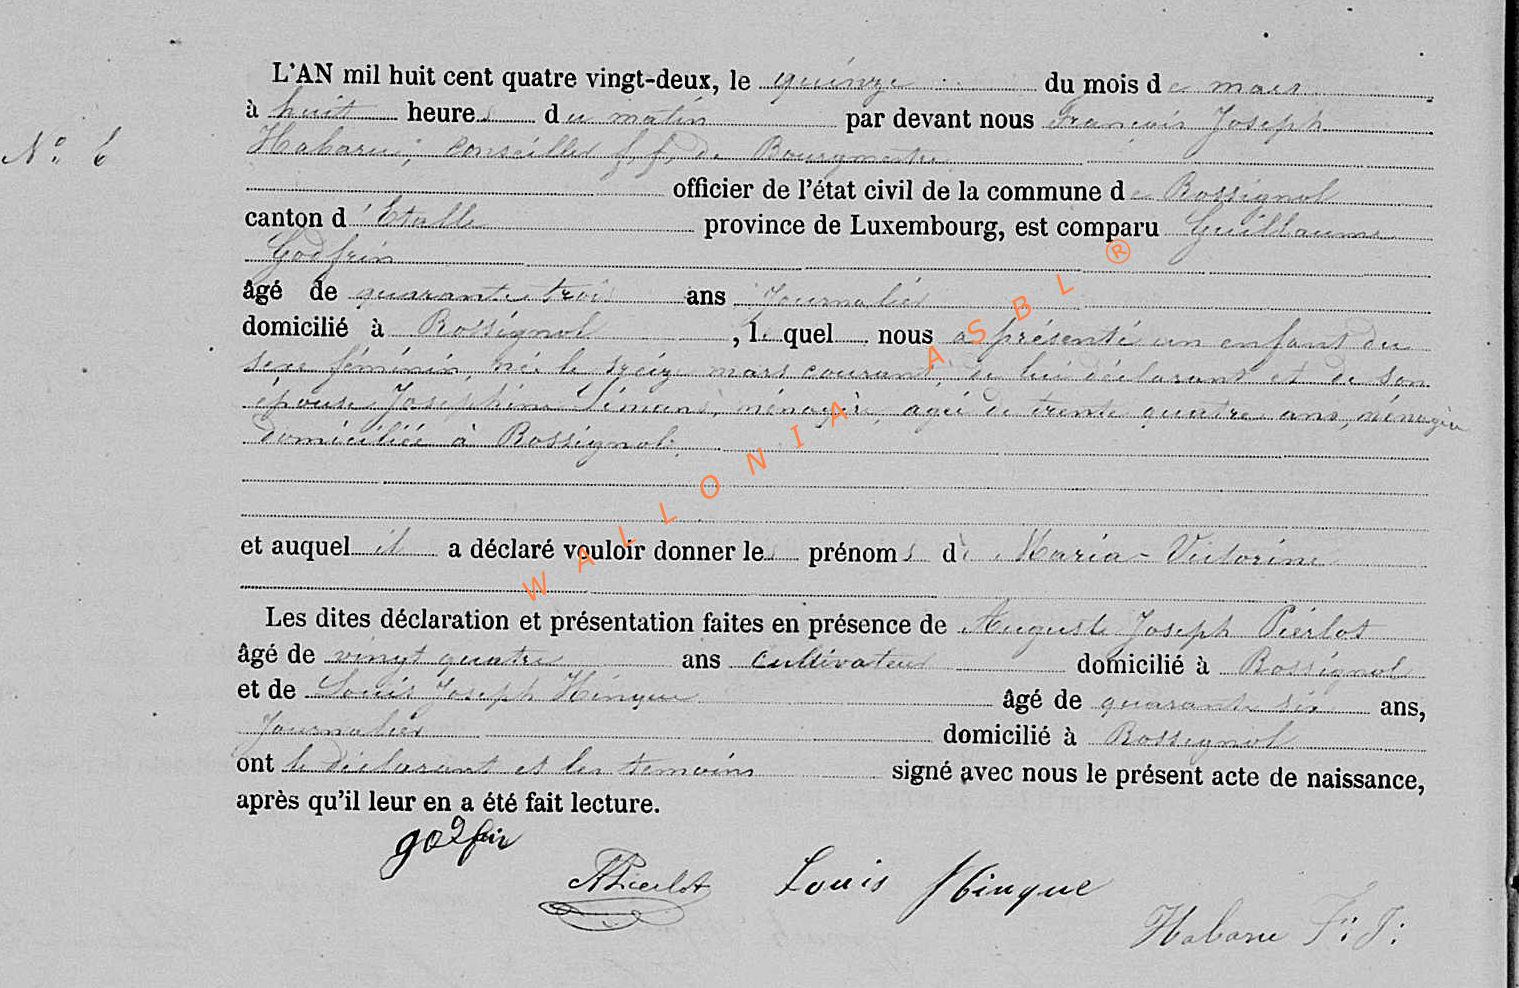 L'AN mil huit cent quatre vingt-deux, le quinze du mois de mars
à huit heures du matin par devant nous François Joseph
N° 6
Habaru, Conseiller f. f. de Bourgmestre
officier de l'état civil de la commune de Rossignol
canton d'Etalle province de Luxembourg, est comparu Guillaume
Godfrin
âgé de quarante trois ans Journalier
domicilié à Rossignol, le quel nous a présenté un enfant du
sexe féminin, née le treize mars courant, de lui déclarant et de son
épouse Joséphine ménagère, agée de trente quatre ans, ménagère
domiciliée à Rossignol.
et auquel il a déclaré vouloir donner les prénoms de Maria-Victorine
Les dites déclaration et présentation faites en présence de Auguste Joseph Pierlot
âgé de vingt quatre ans cultivateur domicilié à Rossignol
et de Louis Joseph Hinque âgé de quarante six ans,
Journalier domicilié à Rossignol
ont le déclarant et les temoins signé avec nous le présent acte de naissance,
après qu'il leur en a été fait lecture.
godfrin
APierlot Louis Hinque
Habaru F: J:
WALLONIA ASBL ®